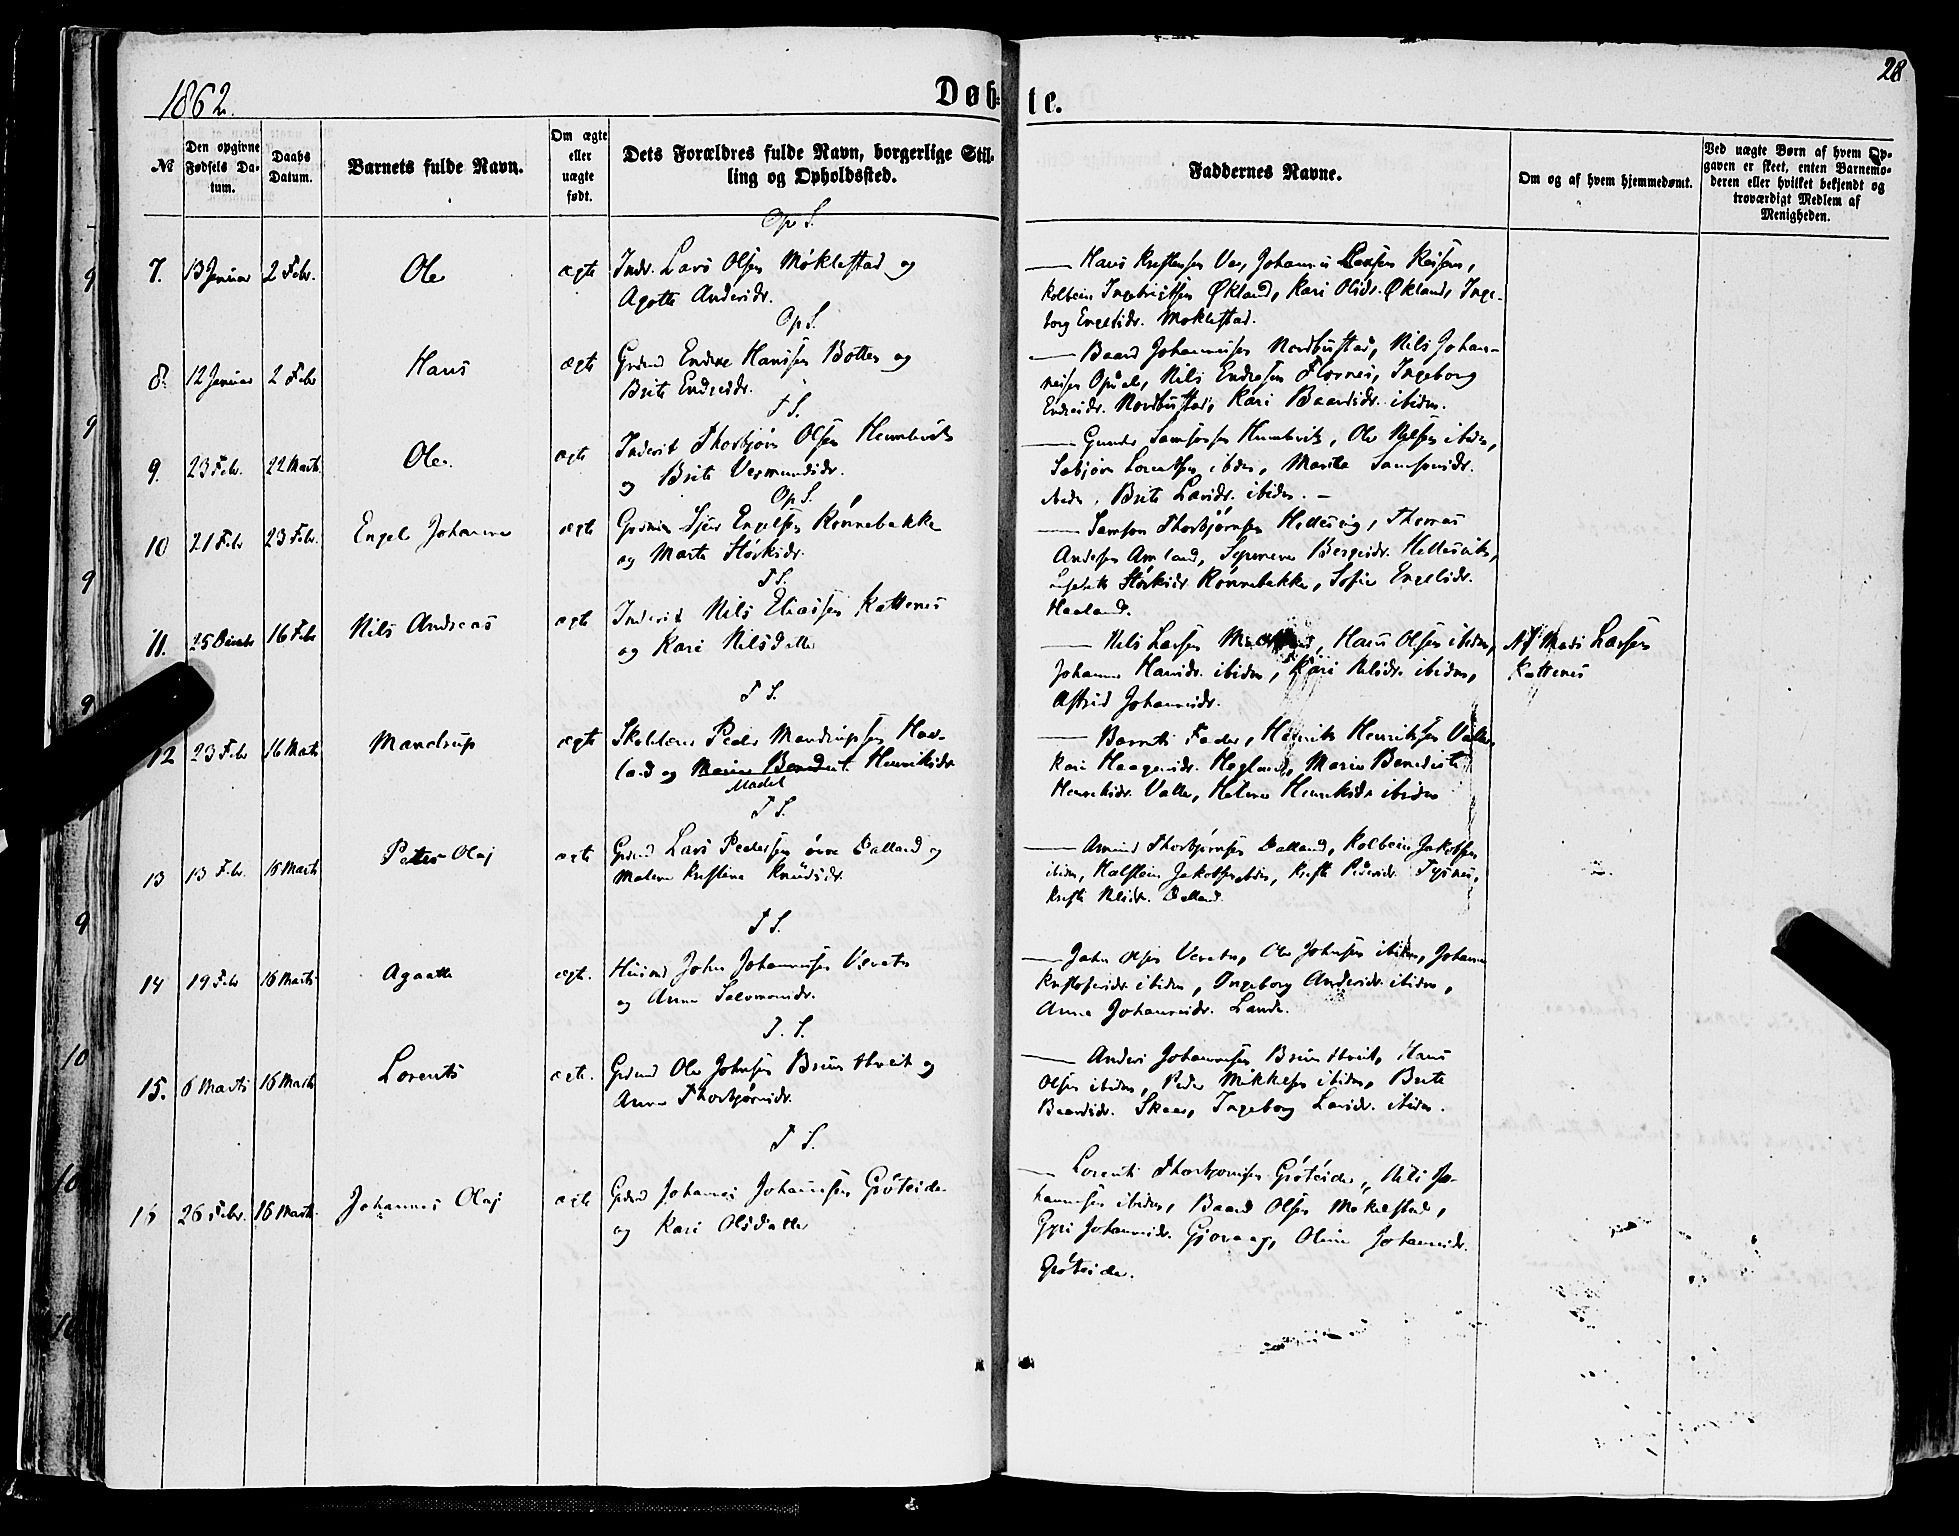 28
1862.
Døb- te.
№
Den opgivne Fødsels Datum.
Daabs Datum.
Barnets fulde Navn.
Om ægte eller uægte født.
Dets Forældres fulde Navn, borgerlige Stilling og Opholdssted.
Faddernes Navne.
Om og af hvem hjemmedøbt.
Ved uægte Børn af hvem Opgaven er skeet, enten Barnemoderen eller hvilket bekjendt og troværdigt Medlem af Menigheden.
Op S.
7. 13 Januar 2 Febr. Ole ægte Inds. Lars Olsen Møklestad og
Agate Andersdr.
Johannes
Kolbein Ingebrigtsen Økland, Kari Olsdr. Økland, Inge-
borg Engelsdr. Moklestad.
Op S.
8. 12 Januar 2 Febr Hans ægte Grdmd Endre Hanssen Botten og
Brite Endresdr.
Baard Johannessen Nordbustad, Nils Johan-
nessen Opsal, Nils Endresen Flornes, Ingeborg
Endresdr. Nordbustad, Kari Baardsdr. ibidm.
T S.
9. 23 Febr. 22 Marts Ole. ægte Inderst Thorbjørn Olsen Humlevik
og Brite Vermundsdr.
Gunder Samsonsen Humlevik, Ole Nilsen ibidm,
ibidm, Marite Samsonsdr.
ibidm. Brite Larsdr. ibidm. –
Op S.
10 21 Febr 23 Febr. Engel Johanna ægte Sjur Engelsen Rønnebakke
og Marte Størksdr.
Samson Thorbjørnsen Hellesvig, Thomas
Andersen Amland, Bergesdr. Hellesvik,
Størksdr Rønnebakke, Sofie Engelsdr.
Haaland.
T S.
11. 25 16 Febr Nils Andreas ægte Inderst Nils Eliassen Kattenes
og Kari Nilsdatter
Nils Larsen Hans Olsen ibidm,
Johanne Hansdr. ibidm, Kari Nilsdr. ibidm,
Astrid Johannesdr.
Af Mads Larsen
Kattenes
T S.
12 23 Febr 16 Marts Mandrup ægte Skolelærer Peder Mandrupsen Hav-
land og Marie Benedict Henriksdr
Madel
Barnets Fader, Henrik Henriksen Valle,
Kari Haagensdr. Heglund, Marie Benedicte
Henriksdr. Valle, Helene Henriksdr ibidm
T S.
13 13 Febr. 16 Marts Peter Olaj ægte Grdmd Lars Pedersen øvre Dalland og
Malene Kristine Knudsdr.
Amund Thorbjørnsen Dalland, Kolbein Jakobsen
ibidm, Halstein Jakobsen ibidm, Pedersdr. Tysnes,
Nilsdr. Dalland.
T S.
14 19 Febr 16 Marts Agaate ægte. Husmd John Johannessen Veraten
og Anna Salomonsdr.
John Olsen Veraten, Ole Johnsen ibidm, Johanne
Kristofersdr. ibidm, Ingeborg Andersdr. ibidm,
Anna Johannesdr. Lande.
T. S.
15. 6 Marts 16 Marts Lorents ægte. Grdmd Ole Johnsen Bruntveit og
Anna Thorbjørnsdr.
Anders Johannessen Bruntveit, Hans
Olsen ibidm, Peder Mikkelsen ibidm, Brite
Baardsdr. Skaar, Ingeborg Larsdr. ibidm.
T S.
16 26 Febr. 16 Marts. Johannes Olaj ægte Grdmd Johannes Johannessen Grøteide
og Kari Olsdatter
Lorents Thorbjørnsen Grøteide, Nils Jo-
hannessen ibidm, Baard Olsen Møkelstad,
Gyri Johannesdr. Gjøvaag, Oline Johannesdr.
Grøteide.
9
9
9
9
9
10
10
10